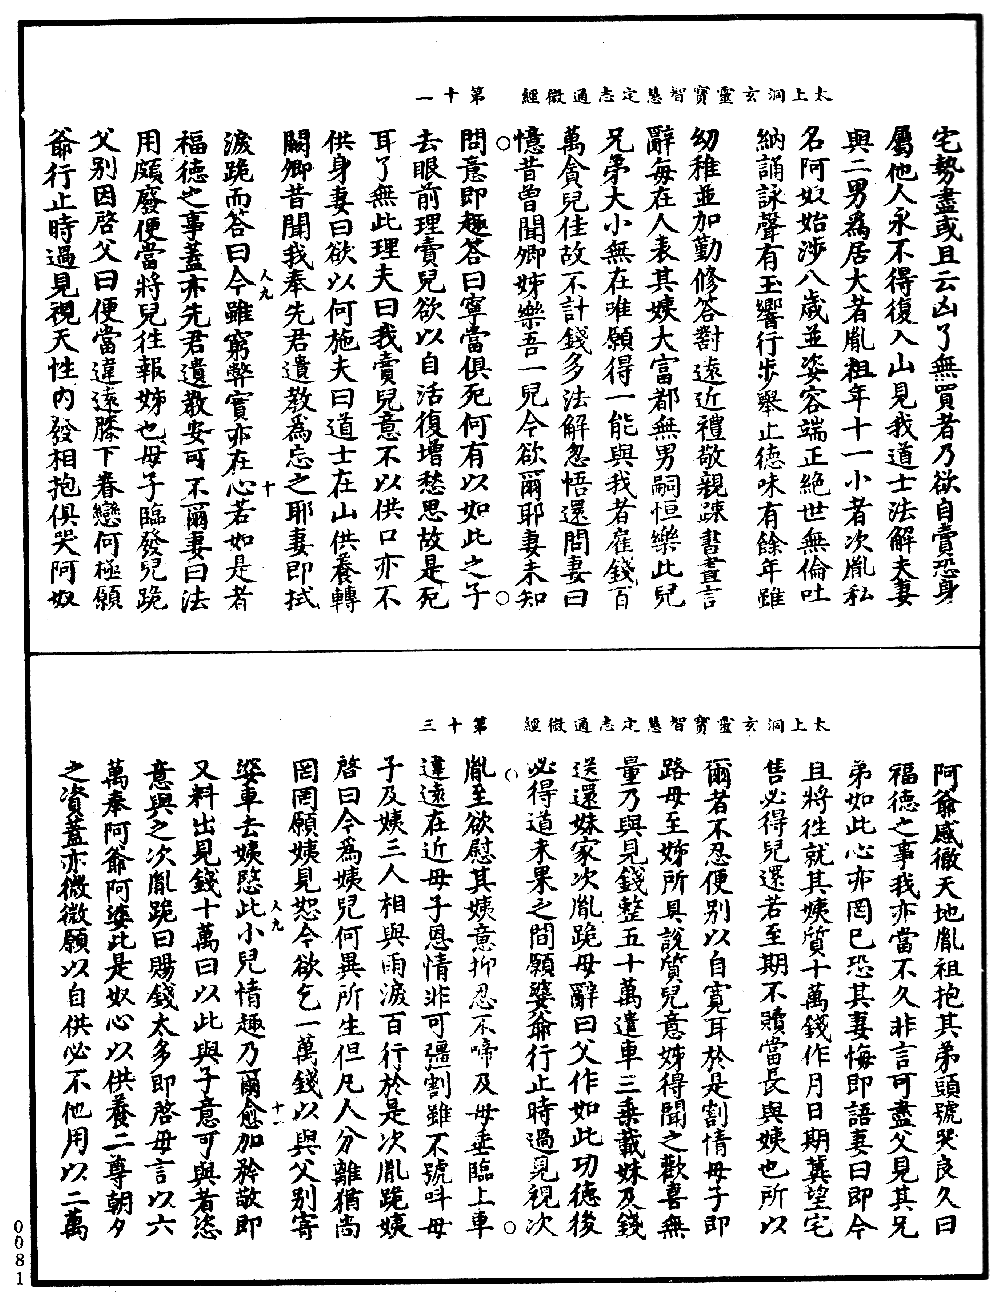 太上洞玄靈寶智慧定志通微經　第十一
宅勢盡或且云凶了無買者乃欲自賣恐身
屬他人永不得復入山見我道士法解夫妻
與二男為居大者胤祖年十一小者次胤私
名阿奴始涉八歲並姿容端正絕世無倫吐
納誦詠聲有玉響行步舉止德味有餘年雖
幼稚並加勤修答對遠近禮敬親踈書晝言
辭每在人表其姨大富都無男嗣恒樂此兒
兄弟大小無在唯願得一能與我者雇錢百
萬貪兒佳故不計錢多法解忽悟還問妻曰
憶昔曾聞卿姊樂吾一兒今欲爾耶妻未知
問意即趣答曰寧當俱死何有以如此之子
去眼前理賣兒欲以自活復增愁思故是死
耳了無此理夫曰我賣兒意不以供口亦不
供身妻曰欲以何施夫曰道士在山供養轉
闕卿昔聞我奉先君遺教為忘之耶妻即拭
淚跪而答曰今雖窮弊實亦在心若如是者
人九　十
福德之事蓋亦先君遺教安可不爾妻曰法
用頗廢便當將兒往報姊也母子臨發兒跪
父別因啓父曰便當違遠膝下眷戀何極願
爺行止時過見視天性內發相抱俱哭阿奴
太上洞玄靈寶智慧定志通微經　第十三
阿爺感徹天地胤祖抱其弟頭號哭良久曰
福德之事我亦當不久非言可盡父見其兄
弟如此心亦罔已恐其妻悔即語妻曰即今
且將往就其姨質十萬錢作月日期冀望宅
售必得兒還若至期不贖當長與姨也所以
爾者不忍便別以自寬耳於是割情母子即
路母至姊所具說質兒意姊得聞之歡喜無
量乃與見錢整五十萬遣車三乘載妹及錢
送還妹家次胤跪母辭曰父作如此功德後
必得道未果之間願婆爺行止時過見視次
胤至欲慰其姨意抑忍不啼及母垂臨上車
違遠在近母子恩情非可彊割雖不號呌母
子及姨三人相與雨淚百行於是次胤跪姨
啓曰今為姨兒何異所生但凡人分離猶尚
罔罔願姨見恕今欲乞一萬錢以與父別寄
婆車去姨愍此小兒情趣乃爾愈加矜敬即
人九　十一
又料出見錢十萬曰以此與子意可與者恣
意與之次胤跪曰賜錢太多即啓母言以六
萬奉阿爺阿婆此是奴心以供養二尊朝夕
之資蓋亦微微願以自供必不他用以二萬
0081